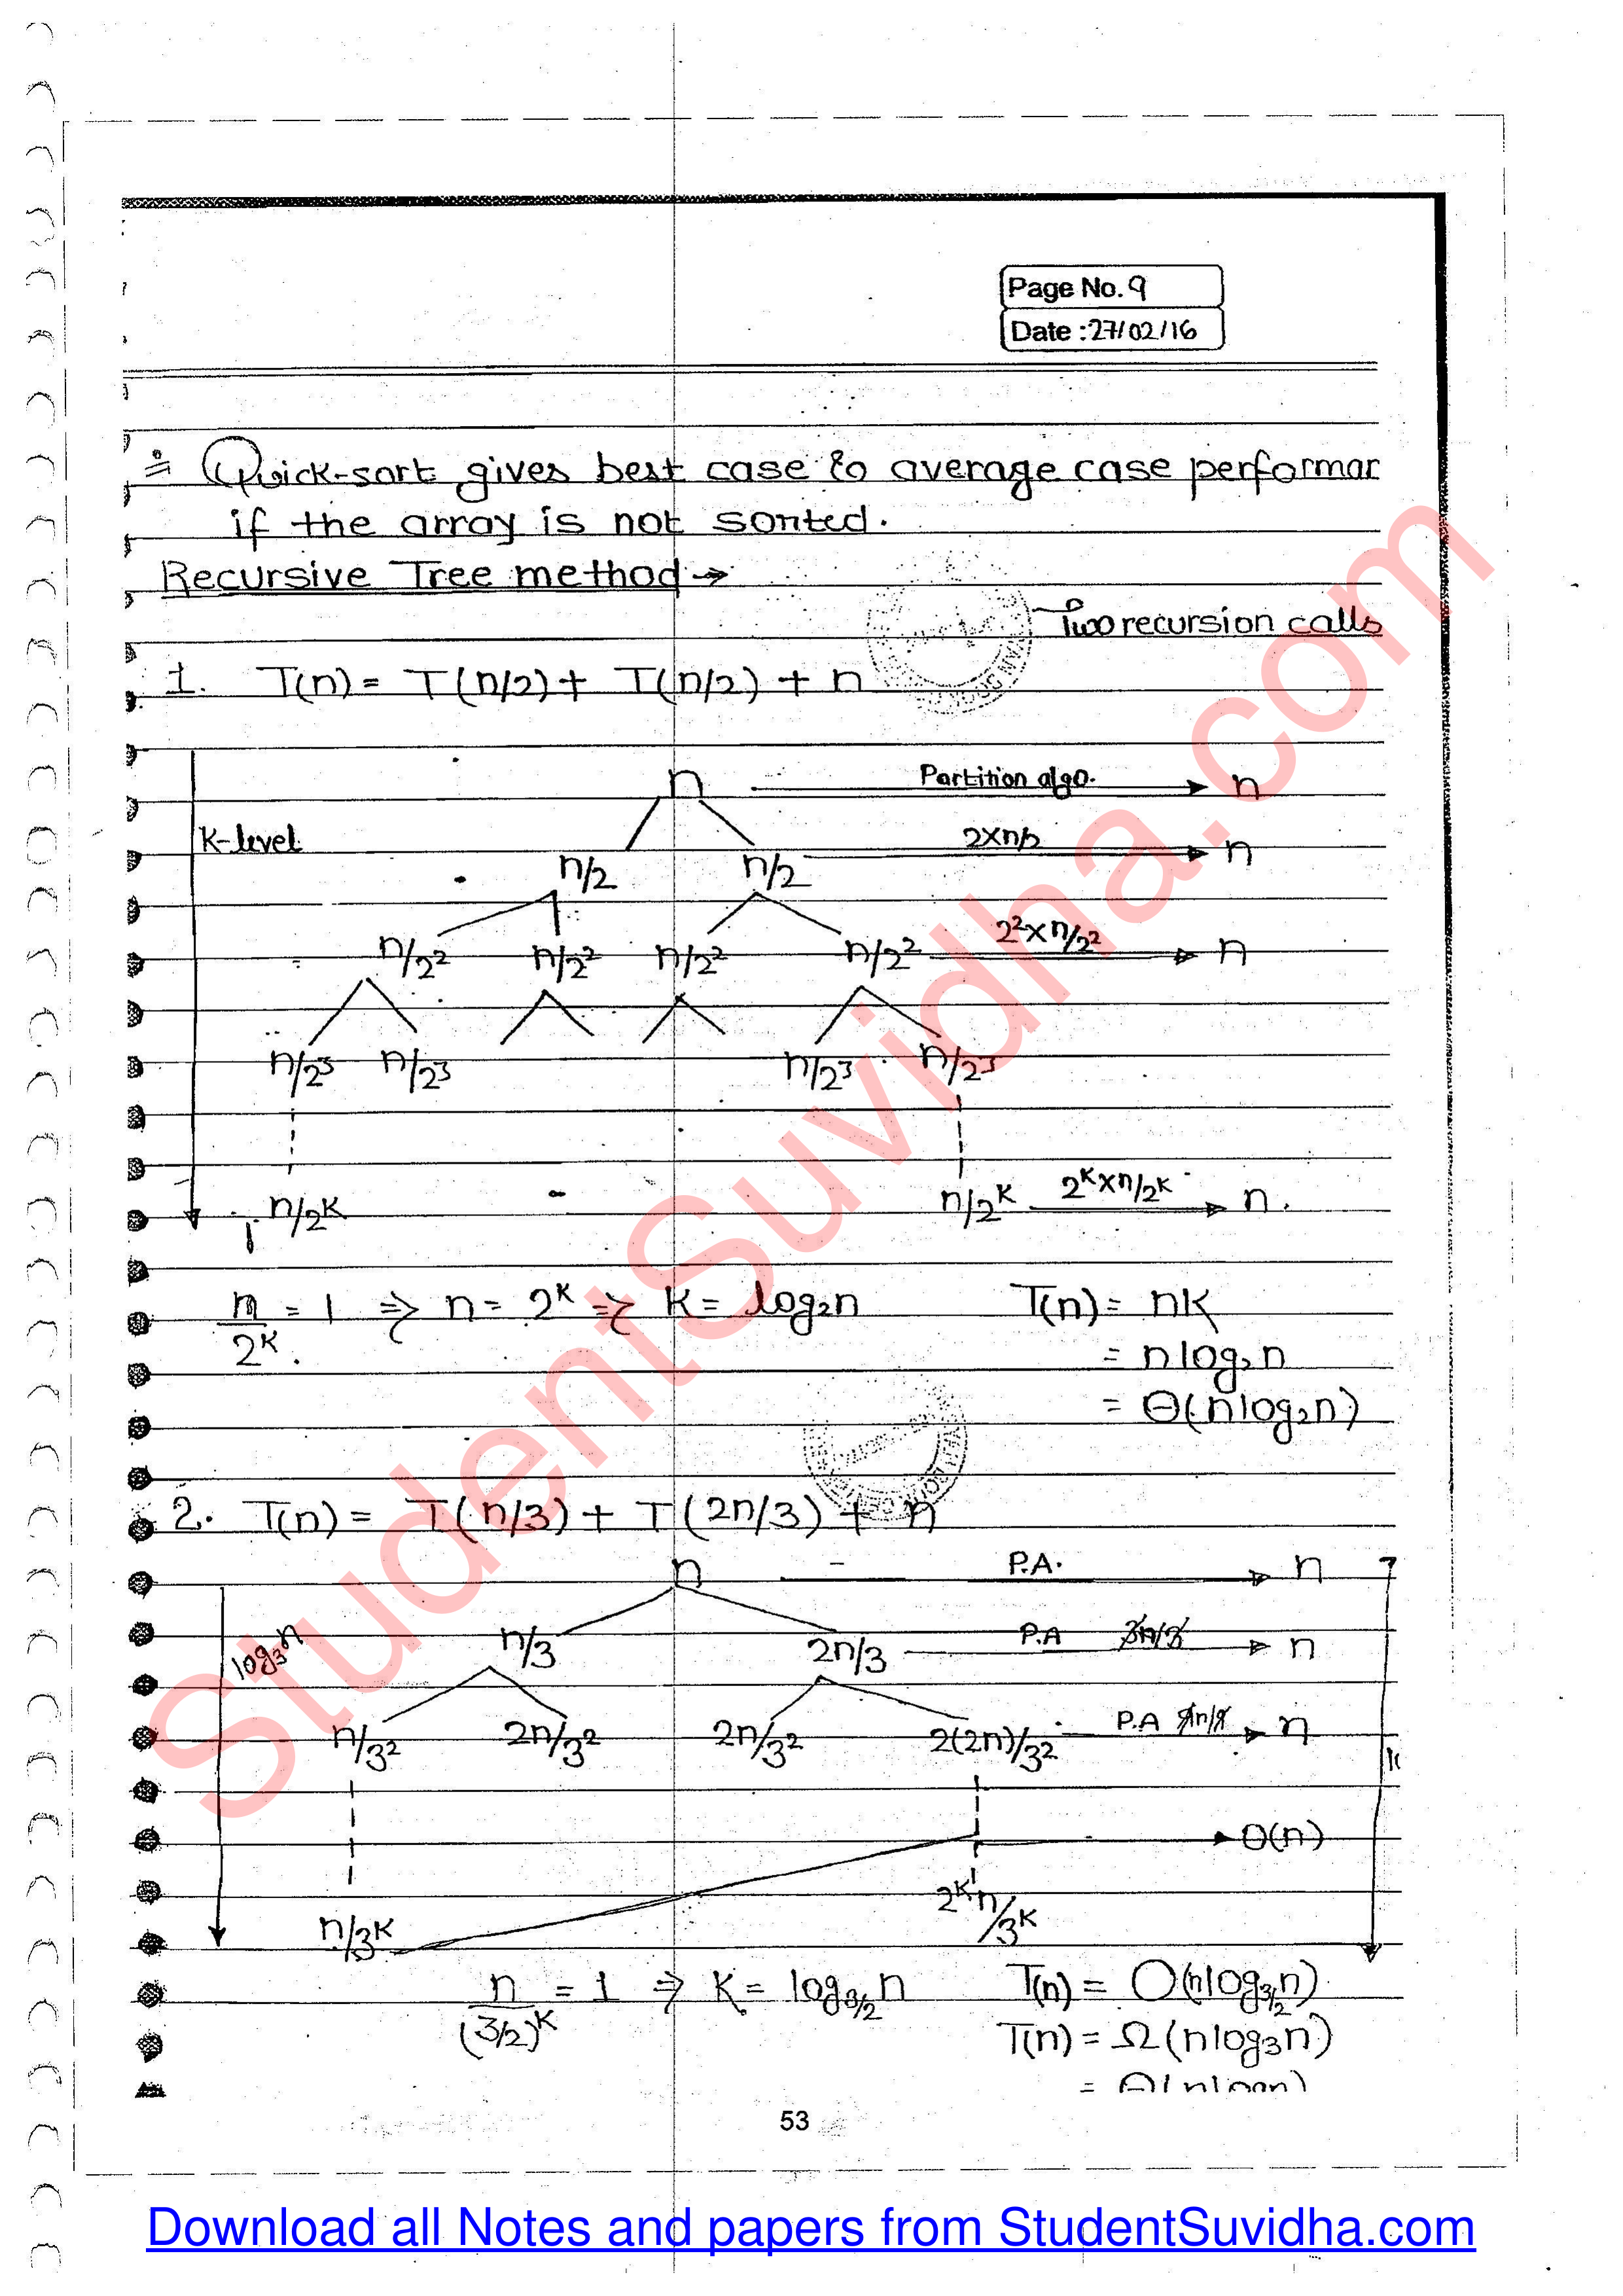 Page No. 9
Date : 27/02/16
Quick-sort gives best case to average case performar
if the array is not sorted.
Recursive Tree method →
Two recursion calls
1. T(n) = T(n/2) + T(n/2) + n
n Partition algo. → n
K-level
n/2 n/2 2×n/2 → n
n/2² n/2² n/2² n/2² 2²×n/2² → n
n/2³ n/2³ n/2³ n/2³
n/2^K n/2^K 2^K×n/2^K → n.
n/2^K = 1 ⇒ n = 2^K ⇒ K = log₂n T(n) = nK
= n log₂ n
= Θ(n log₂n)
2. T(n) = T(n/3) + T(2n/3) + n
n P.A. → n
log₃n
n/3 2n/3 P.A 3n/3 → n
n/3² 2n/3² 2n/3² 2(2n)/3² P.A 9n/9 → n
K
→ O(n)
n/3^K 2^K n/3^K
n/(3/2)^K = 1 ⇒ K = log_{3/2} n T(n) = O(n log_{3/2} n)
T(n) = Ω(n log₃n)
= Θ(n log n)
53
Download all Notes and papers from StudentSuvidha.com
StudentSuvidha.com